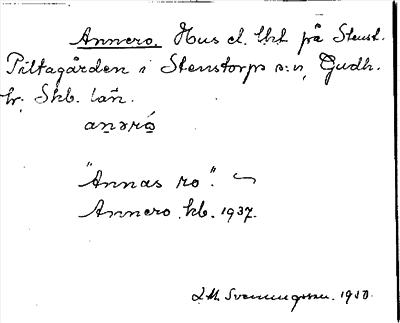 Annero. Hus el. lht på Stenst.
Piltagården i Stenstorps s:n, Gudh.
hr; Skb. län.
anəró
"Annas ro".
Annero kb. 1937.
L.M. Svenungsson. 1930.